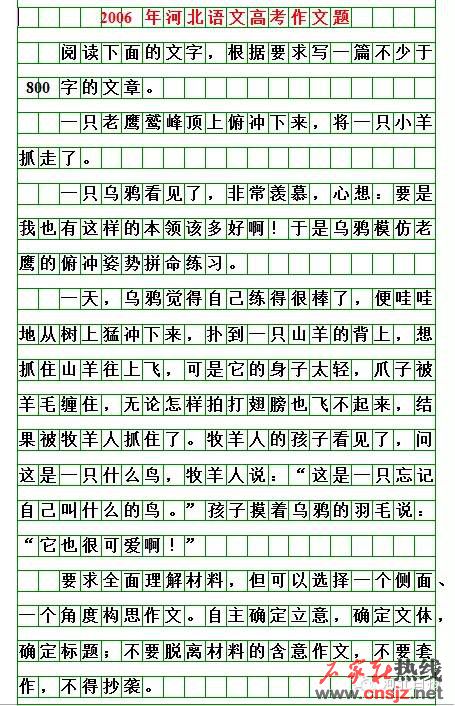 2006 年河北语文高考作文题
阅读下面的文字，根据要求写一篇不少于
800 字的文章。
一只老鹰鹫峰顶上俯冲下来，将一只小羊
抓走了。
一只乌鸦看见了，非常羡慕，心想：要是
我也有这样的本领该多好啊！于是乌鸦模仿老
鹰的俯冲姿势拼命练习。
一天，乌鸦觉得自己练得很棒了，便哇哇
地从树上猛冲下来，扑到一只山羊的背上，想
抓住山羊往上飞，可是它的身子太轻，爪子被
羊毛缠住，无论怎样拍打翅膀也飞不起来，结
果被牧羊人抓住了。牧羊人的孩子看见了，问
这是一只什么鸟，牧羊人说：“这是一只忘记
自己叫什么的鸟。”孩子摸着乌鸦的羽毛说：
“它也很可爱啊！”
要求全面理解材料，但可以选择一个侧面、
一个角度构思作文。自主确定立意，确定文体，
确定标题；不要脱离材料的含意作文，不要套
作，不得抄袭。
石家庄热线
www.cnsjz.net